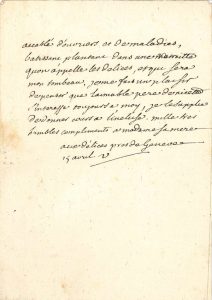 accablé d'ouvriers et de maladies,
batissant plantant dans une retraitte
qu'on appelle les délices, et qui sera
mon tombeau, je me fais un plaisir
de penser que l'aimable pere
s'interesse toujours a moy, je le supplie
de donner cours a l'incluse. mille tres
humbles compliments a madame sa mere
aux délices pres de Geneve
15 avril V